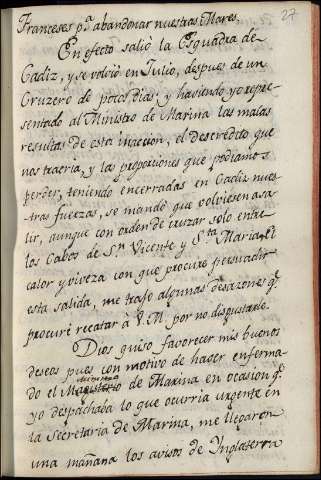 27
Franceses p.ª abandonar nuestras Mares.
En efecto salió la Esquadra de
Cadiz, y se volvió en Julio, despues de un
Cruzero de pocos dias, y haviendo yo repre-
sentado al Ministro de Marina las malas
resultas de esta inaccion, el descredito que
nos traeria, y las proporciones que podiamos
perder, teniendo encerradas en Cadiz nues-
tras fuerzas, se mandó que volviesen a sa-
lir, aunque con orden de cruzar solo entre
los Cabos de S.n Vicente y S.ta Maria. El
calor y viveza con que procuré persuadir
esta salida, me trajo algunas desazones q.e
procuré recatar à V.M. por no disgustarle.
Dios quiso favorecer mis buenos
deseos pues con motivo de haver enferma-
do el Ministro de Marina en ocasion q.e
yo despachaba lo que ocurria urgente en
la Secretaria de Marina, me llegaron
una mañana los avisos de Inglaterra